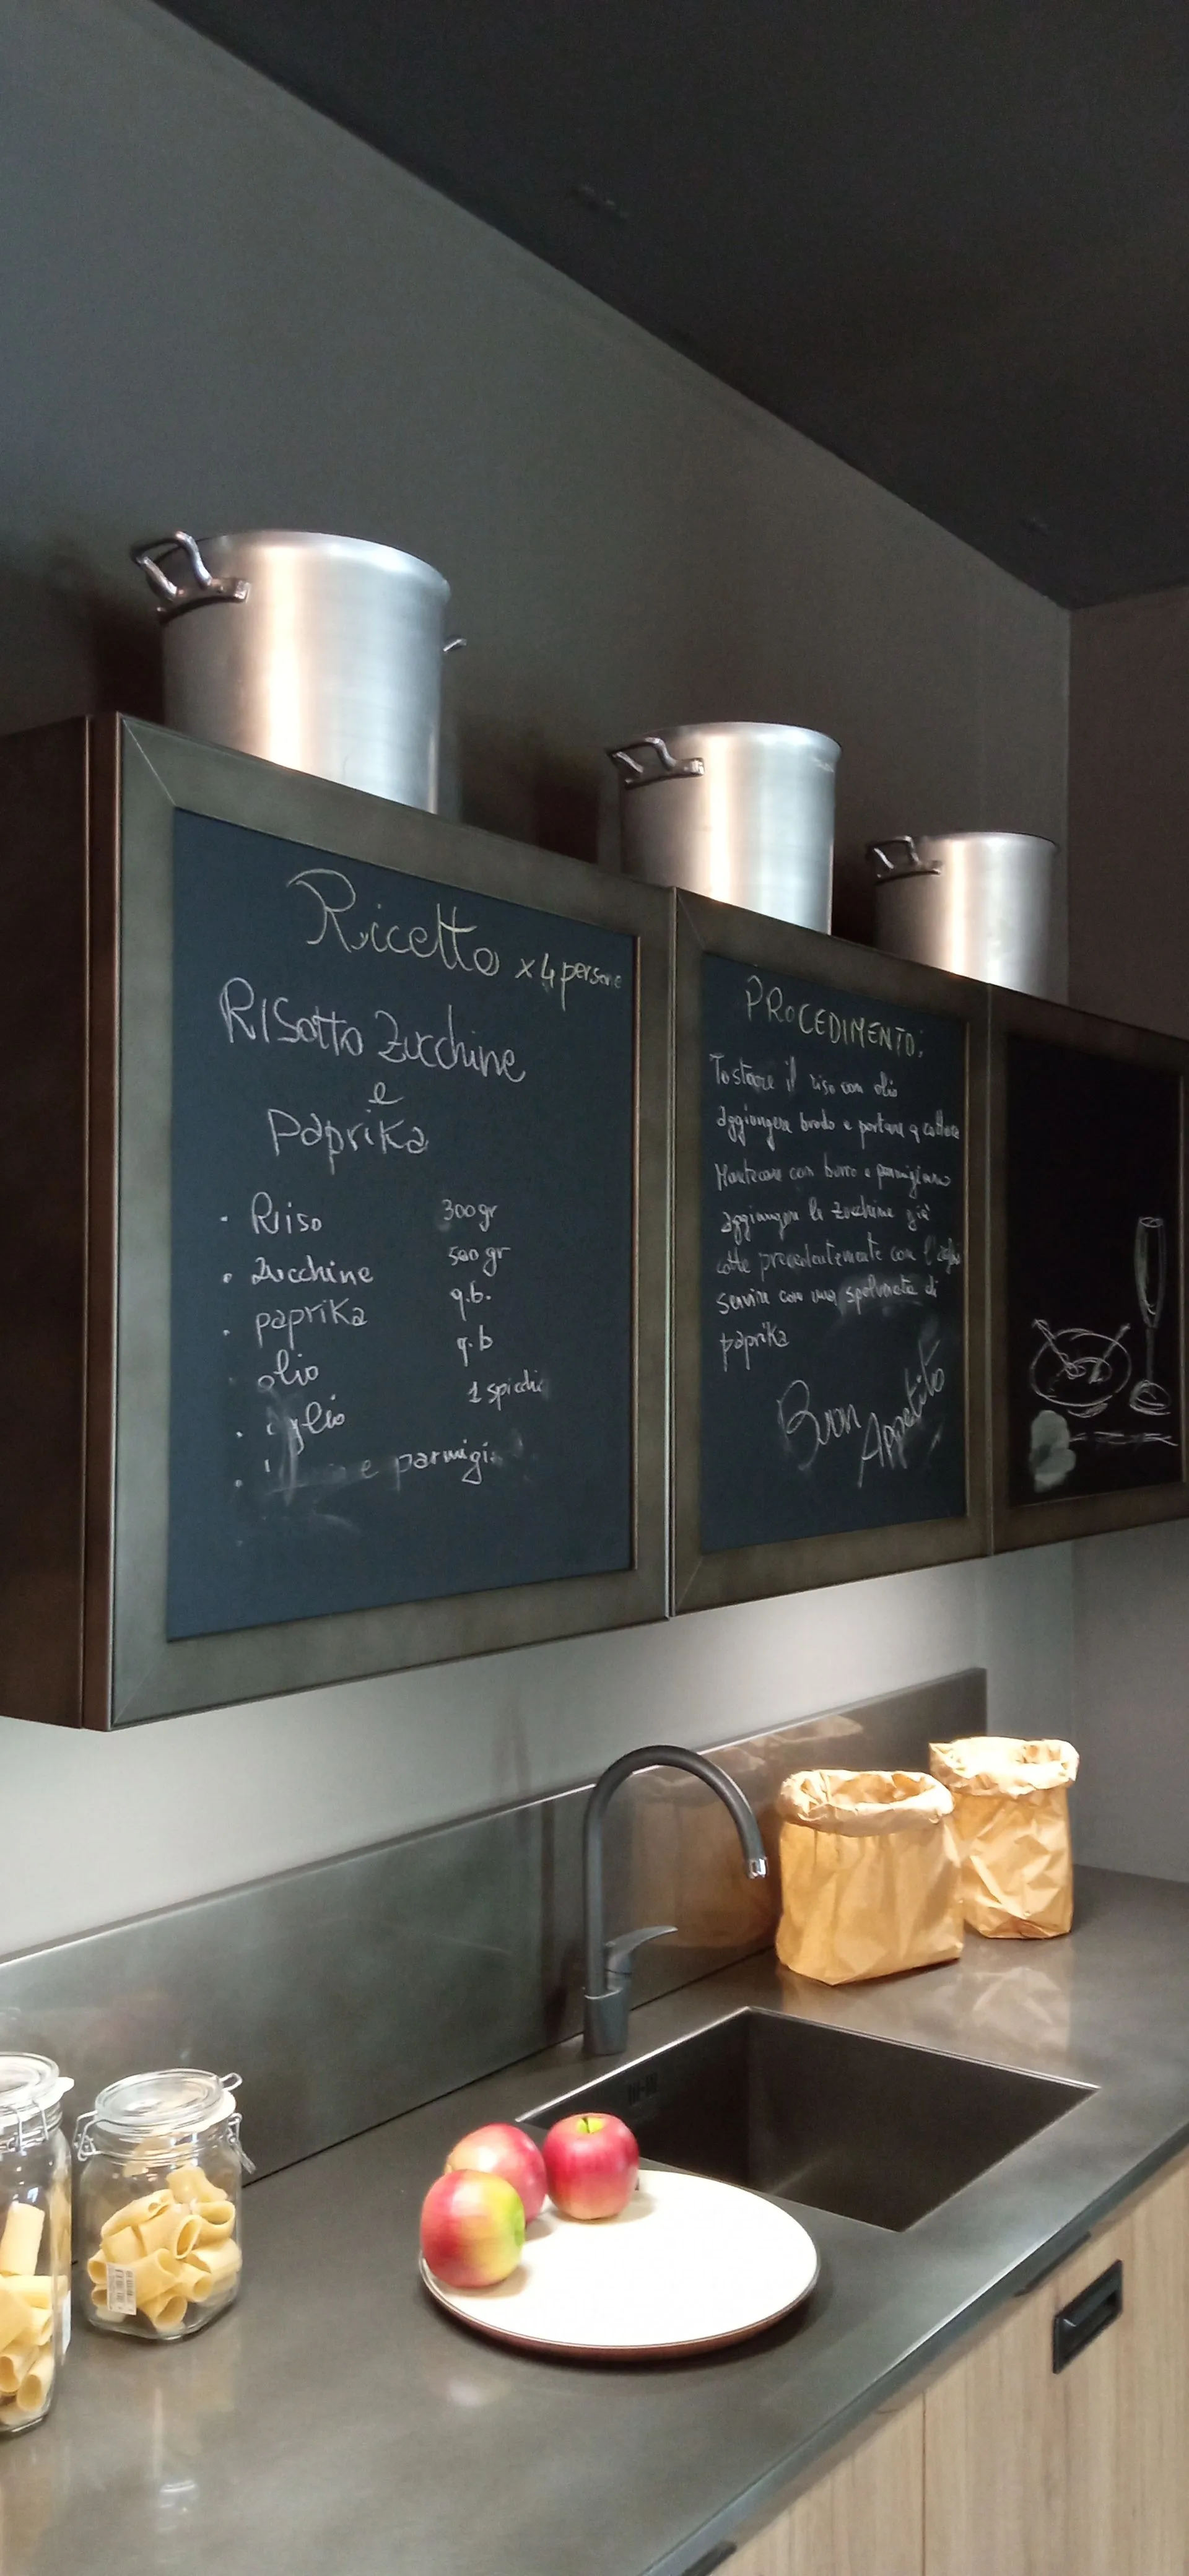 Ricetta x 4 persone
Risotto Zucchine
e
paprika
· Riso 300gr
· Zucchine 500 gr
· paprika q.b.
olio q.b
· aglio 1 spicchi
· e parmigi
PROCEDIMENTO:
Tostare il riso con olio
aggiungere brodo e portare a cottura
Mantecare con burro e parmigiano
aggiungere le zucchine già
cotte precedentemente con l'aglio
servire con una spolverata di
paprika
Buon
Appetito